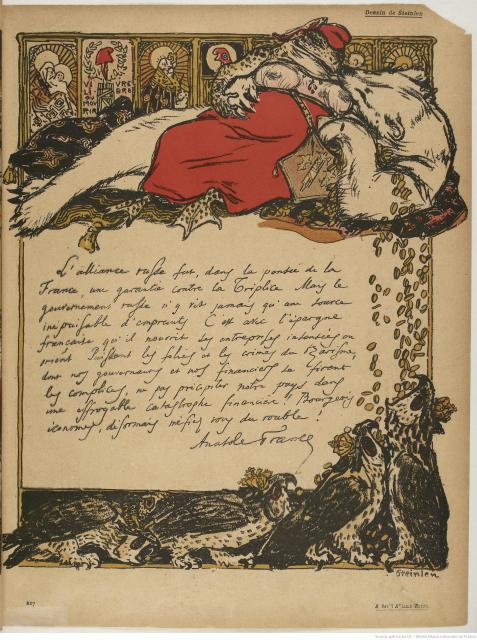 Dessin de Steinlen
VIVRE
LIBRE
OU
MOURIR
L'alliance russe fut, dans la pensée de la
France, une garantie contre la Triplice. Mais le
gouvernement russe n'y vit jamais qu'une source
inépuisable d'emprunts. C'est avec l'épargne
française qu'il nourrit les entreprises insensées en
orient. Puissent les folies et les crimes du Tsarisme,
dont nos gouverneurs et nos financiers se firent
les complices, ne pas précipiter notre pays dans
une effroyable catastrophe financière !! Bourgeois
économes, désormais méfiez vous du rouble !
Anatole France
Steinlen
227
Source gallica.bnf.fr / Bibliothèque nationale de France